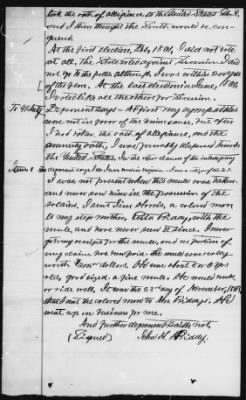 took the oath of allegiance to the United States
and I then thought the South would be conquered.
At the first election, Feb, 1861, I did not vote
at all. The State voted against Secession. I did
not go to the polls although I was within
of the place. At the last election in June, 1861
I voted like all the others for Secession.
To Ninety
Deponent says - At first my sympathies
were not in favor of the union cause, but after
I had taken the oath of allegiance, and the
amnesty oath, I was favorably disposed towards
the United States.
Item 1
I was not present when this mule was taken
and never saw him in the possession of the
soldiers. I sent Jim Horris, a colored man
to my step mother, with the
mule, and have never seen it since. I never
got any receipts for this mule, and no portion of
my claim has been paid. The mule was really
worth dollars. He was about 6 or 8 years
old, good sized, a fine mule. He would work
or ride well. It was the 23rd day of November, 186
that I sent the colored man to Mrs Priddy's. He
went up on business for me.
And further deponent saith not,
(Signed) John H. Priddy.